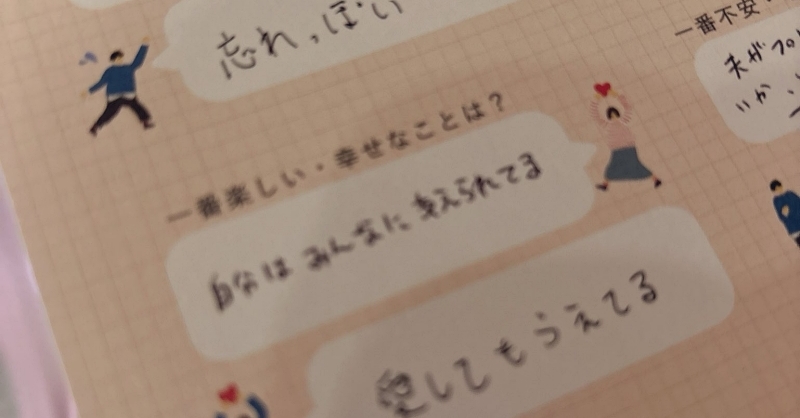 忘れっぽい
一番楽しい・幸せなことは？
自分はみんなに支えられてる
愛してもらえてる
一番不安・
夫が
いか